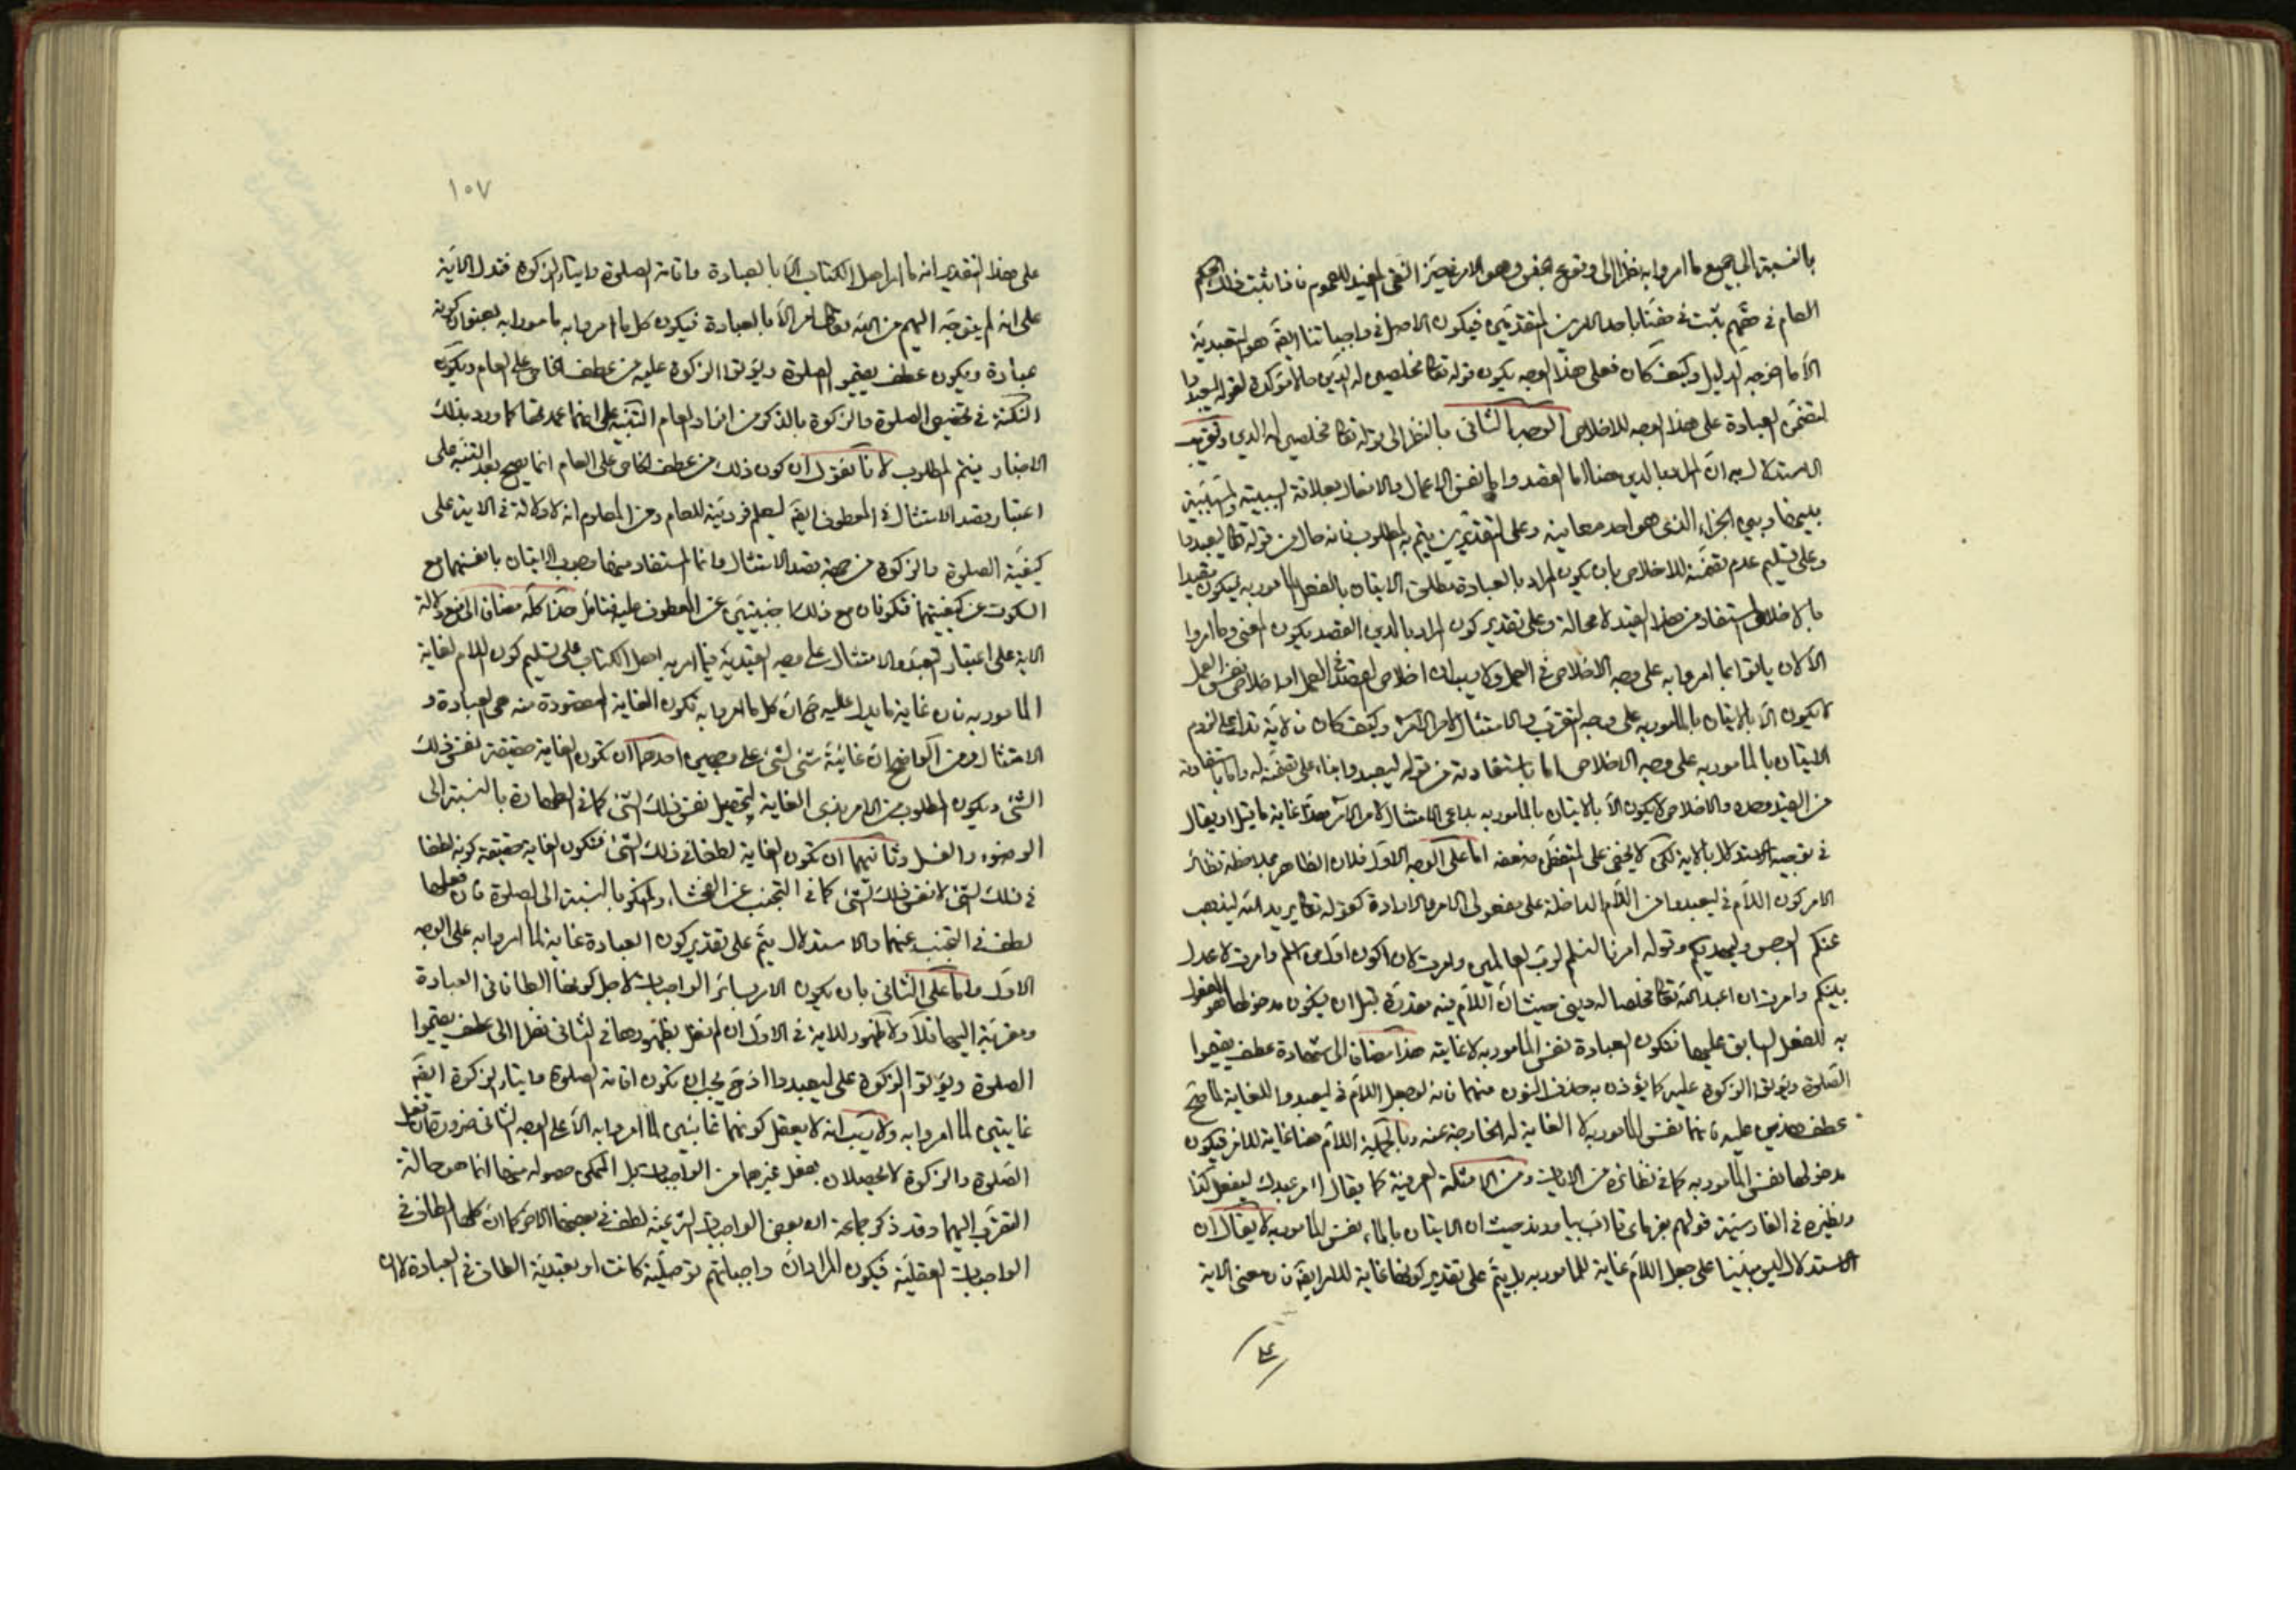 بالنسبة الى جميع ما امروا به نظرا الى وقوع الجنس وهو الامر في حيّز النفي المفيد للعموم فاذا ثبت هذا الحكم
العام في حقهم يثبت في حقنا باحد الامرين المتقدمين فيكون الاصل في واجباتنا ايضا هو التعبدية
الّا ما اخرجه الدليل وكيف كان فعلى هذا الوجه يكون قوله تعالى مخلصين له الدين حالا مؤكدة لقوله ليعبدوا
لتضمن العبادة على هذا الوجه للاخلاص الوجه الثاني بالنظر الى قوله تعالى مخلصين له الدين وتقريب
الاستدلال به ان المراد بالدين هنا اما القصد واما نفس الاعمال والافعال بعلاقة السببية والمسببية
بينها وبين الجزاء الذي هو احد معانيه وعلى التقديرين يتم به المطلوب فانه حال من قوله تعالى ليعبدوا
وعلى تسليم عدم تضمنه للاخلاص بان يكون المراد بالعبادة مطلق الاتيان بالفعل المامور به فيكون مقيدا
بالاخلاص المستفاد من هذا القيد لا محالة وعلى تقدير كون المراد بالدين القصد يكون المعنى وما امروا
الّا لان ياتوا بما امروا به على وجه الاخلاص في العمل ولا ريب ان اخلاص القصد في العمل او اخلاص نفس العمل
لا يكون الّا بالاتيان بالمامور به على وجه التقرب والامتثال لامر الآمر وكيف كان فالآية تدل على لزوم
الاتيان بالمامور به على وجه الاخلاص اما باستفادته من قوله ليعبدوا بناء على تضمنه له واما باستفادته
من القيد وحده والاخلاص لا يكون الّا بالاتيان بالمامور به بداعي الامتثال لامر الآمر هذا غاية ما قيل او يقال
في توجيه الاستدلال بالاية لكن لا يخفى على المتفطن ضعفه اما على الوجه الاول فلان الظاهر بملاحظة نظائر
الامر كون اللام في ليعبدوا من اللام الداخلة على مفعولي الامر والارادة كقوله تعالى يريد الله ليذهب
عنكم الرجس وليهديكم وقوله امرنا لنسلم لرب العالمين وامرت لان اكون اول من اسلم وامرت لاعدل
بينكم وامرت ان اعبد الله تعالى مخلصا له ديني حيث ان اللام فيه مقدرة قبل ان يكون مدخولها هو المفعول
به للفعل السابق عليها فتكون العبادة نفس المامور به لا غايته هذا مضافا الى شهادة عطف يقيموا
الصلوة ويؤتوا الزكوة عليه كما يؤذن به حذف النون منهما فانه لو جعل اللام في ليعبدوا للغاية لما صح
عطف هذين عليه فانهما نفس المامور به لا الغاية له الخارجة عنه وبالجملة اللام هنا غاية للامر فيكون
مدخولها نفس المامور به كما في نظائره من الآيات ومن الامثلة العرفية كما يقال اامر عبدك ليفعل كذا
ونظيره في الفارسية قولهم بفرماى تا اب بياورند حيث ان الاتيان بالماء نفس المامور به لا يقال ان
الاستدلال ليس مبنيا على جعل اللام غاية للمامور به بل يتم على تقدير كونها غاية للامر ايضا فان معنى الاية
على
١٠٧
على هذا التقدير انه ما امر اهل الكتاب الّا بالعبادة واقامة الصلوة وايتاء الزكوة فتدل الآية
على انه لم يتوجه اليهم من الله تعالى امر الّا بالعبادة فيكون كل ما امروا به مامورا به بعنوان كونه
عبادة ويكون عطف يقيموا الصلوة ويؤتوا الزكوة عليه من عطف الخاص على العام ويكون
النكتة في تخصيص الصلوة والزكوة بالذكر من افراد العام التنبيه على انهما عمدتها كما ورد بذلك
الاخبار فيتم المطلوب لانا نقول ان كون ذلك من عطف الخاص على العام انما يصح بعد التنبيه على
اعتبار قصد الامتثال في المعطوف ايضا ليعلم فرديته للعام ومن المعلوم انه لا دلالة في الاية على
كيفية الصلوة والزكوة من جهة قصد الامتثال وانما المستفاد منها وجوب الاتيان بانفسهما مع
السكوت عن كيفيتهما فتكونان مع ذلك اجنبيتين عن المعطوف عليه فتامل هذا كله مضافا الى منع دلالة
الاية على اعتبار التعبد والامتثال على وجه القيدية فيما امر به اهل الكتاب على تسليم كون اللام لغاية
المامور به فان غاية ما يدل عليه ح ان كل ما امروا به تكون الغاية المقصودة منه هي العبادة و
الامتثال ومن الواضح ان غائيّة شئ لشئ على وجهين احدهما ان تكون الغاية حقيقة نفس ذلك
الشئ ويكون المطلوب من الامر بذي الغاية تحصيل نفس ذلك الشئ كما في الطهارة بالنسبة الى
الوضوء والغسل وثانيهما ان تكون الغاية لطفا في ذلك الشئ فتكون الغاية حقيقة كونه لطفا
في ذلك الشئ لا نفس ذلك الشئ كما في التجنب عن الفحشاء والمنكر بالنسبة الى الصلوة فان فعلها
لطف في التجنب عنهما والاستدلال يتم على تقدير كون العبادة غاية لما امروا به على الوجه
الاول واما على الثاني بان يكون الامر بسائر الواجبات لاجل كونها الطافا في العبادة
ومقربة اليها فلا ولا ظهور للاية في الاول ان لم نقل بظهورها في الثاني نظرا الى عطف يقيموا
الصلوة ويؤتوا الزكوة على ليعبدوا اذ ح يجب ان تكون اقامة الصلوة وايتاء الزكوة ايضا
غايتين لما امروا به ولا ريب انه لا يعقل كونهما غايتين لما امروا به الّا على الوجه الثاني ضرورة ان فعل
الصلوة والزكوة لا يحصلان بفعل غيرهما من الواجبات بل الممكن حصوله منها انما هو حالة
التقرب اليهما وقد ذكر جماعة ان بعض الواجبات الشرعية لطف في بعضها الآخر كما ان كلها الطاف في
الواجبات العقلية فيكون المراد ان واجباتهم توصلية كانت او تعبدية الطاف في العبادة لا ان